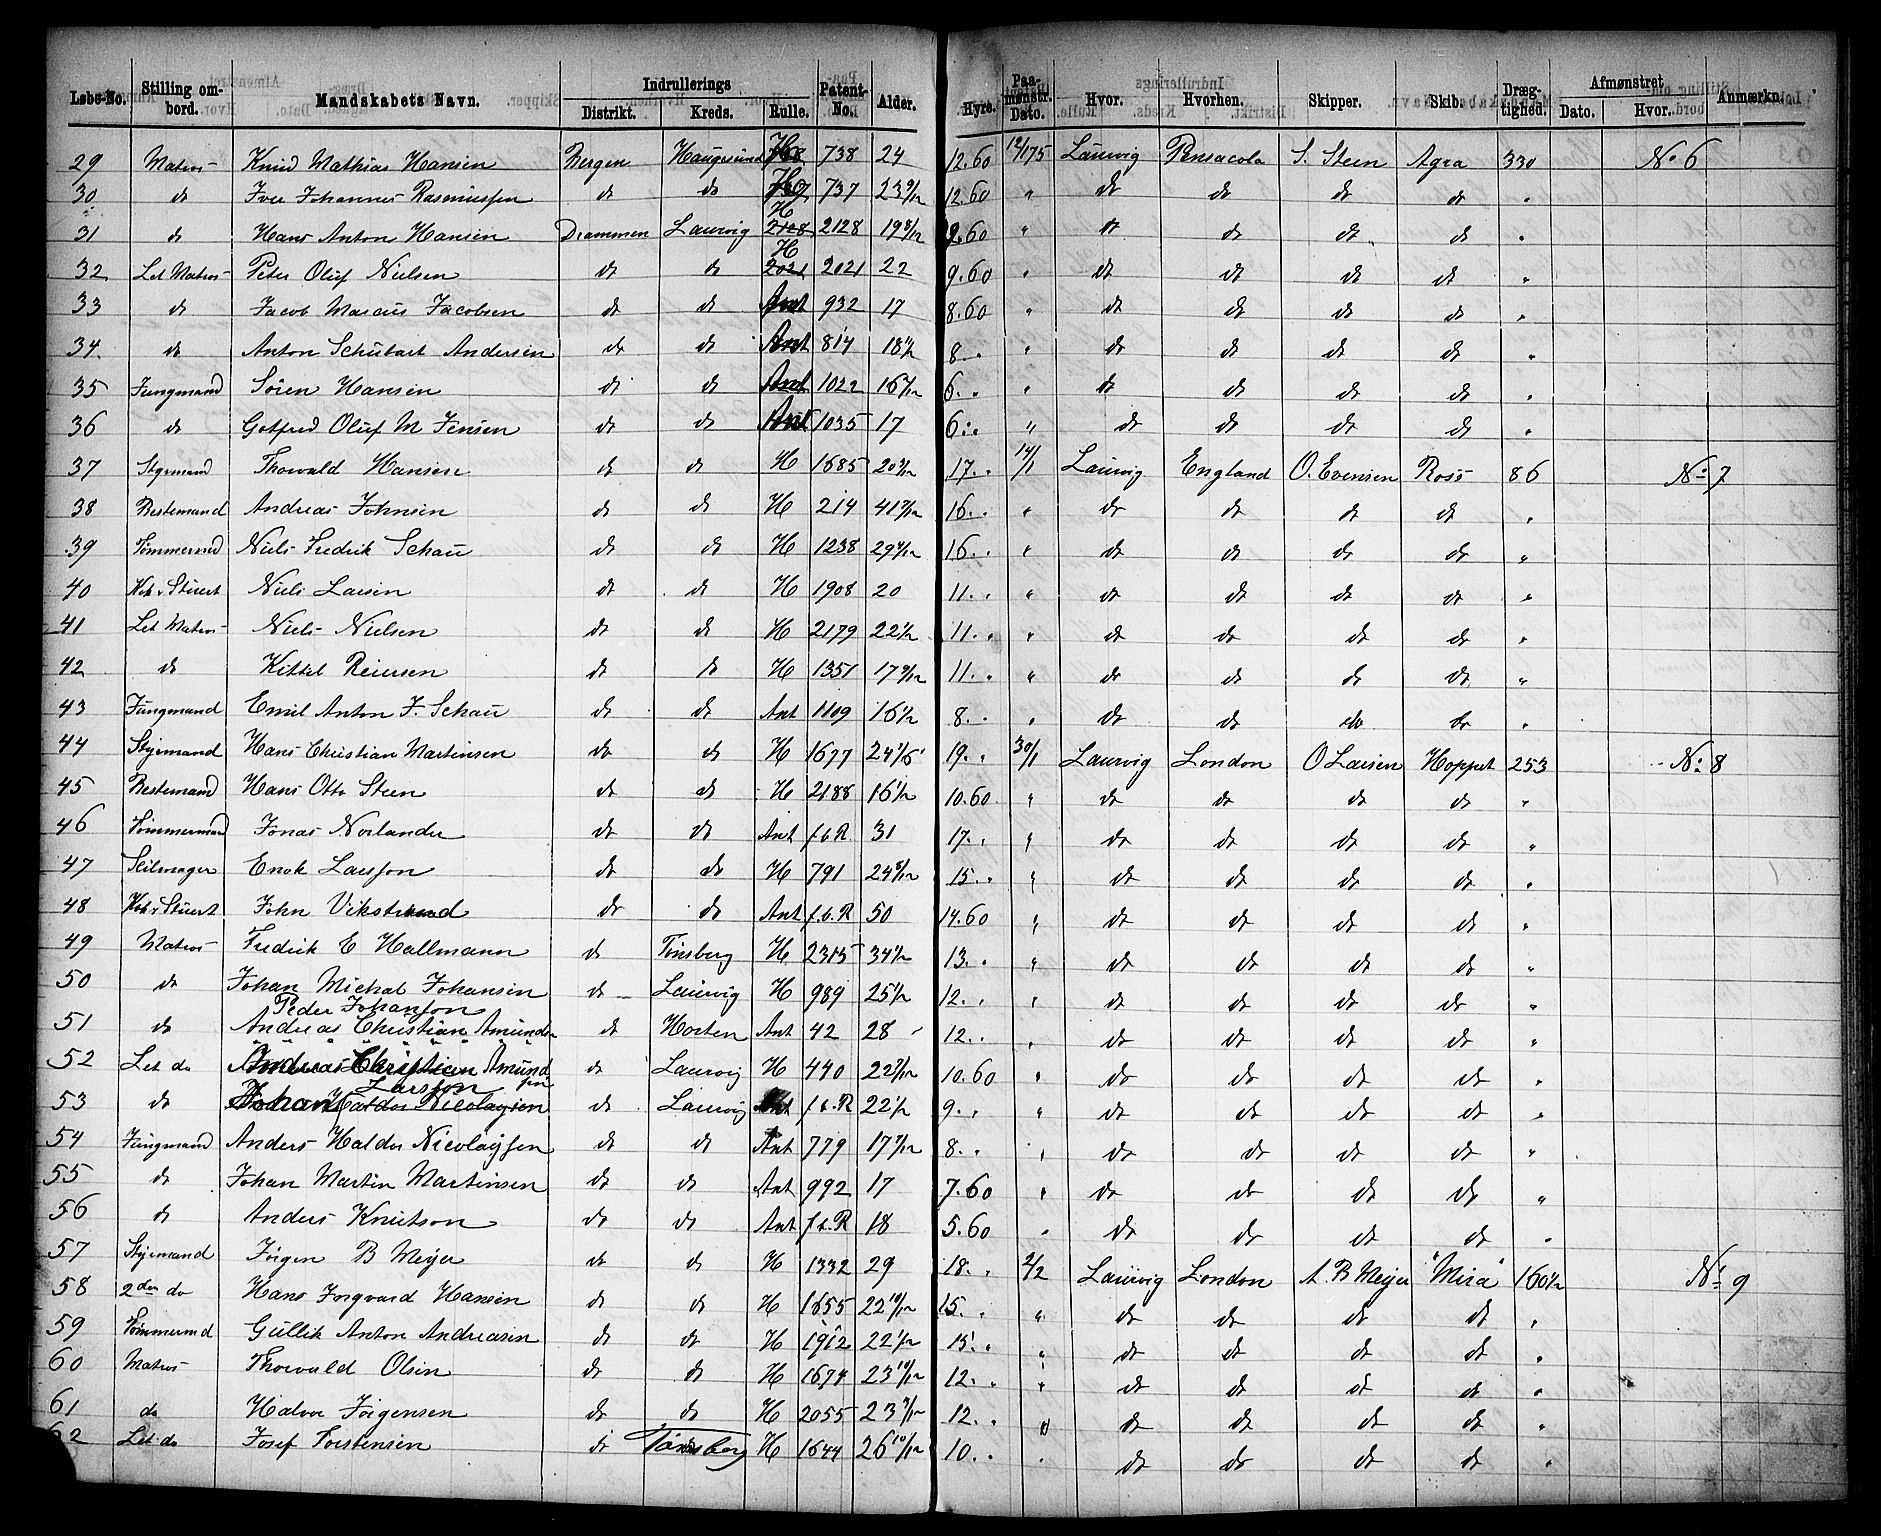 Løbe-No. Stilling ombord. Mandskabets Navn. Indrullerings Distrikt. Kreds. Rulle. Patent-No. Alder. Hyre. Paamønstr. Dato. Hvor. Hvorhen. Skipper. Skib. Drægtighed. Afmønstret Dato. Hvor. Anmærkn.
29 Matros Knud Mathias Hansen Bergen Haugesund H 738 24 12.60 12/1 75 Laurvig Pensacola S. Steen Agra 330 No 6
30 do Iver Johannes Rasmussen do do H 737 23 9/12 12.60 " do do do do "
31 do Hans Anton Hansen Drammen Laurvig H 2128 19 8/12 9.60 " do do do do "
32 Let Matros Peter Oluf Nielsen do do H 2021 22 9.60 " do do do do "
33 do Jacob Marcus Jacobsen do do Ant 932 17 8.60 " do do do do "
34 do Anton Schubart Andersen do do Ant 814 18 1/2 8 " " do do do do "
35 Jungmand Sören Hansen do do Ant 1022 16 6. " " do do do do "
36 do Gotfred Oluf M Jensen do do Ant 1035 17 6. " " do do do do "
37 Styrmand Thorvald Hansen do do H 1685 20 17. " 14/1 Laurvig England O. Evensen Ross 86 No 7
38 Bestemand Andreas Johnsen do do H 214 41 16. " " do do do do "
39 Tömmermd Niels Fredrik Schau do do H 1238 29 16. " " do do do do "
40 Kok & Stuert Niels Larsen do do H 1908 20 11. " " do do do do "
41 Let Matros Niels Nielsen do do H 2179 22 1/2 11. " " do do do do "
42 do Kittel Reiersen do do H 1351 17 9/12 11. " " do do do do "
43 Jungmand Emil Anton F. Schau do do Ant 1109 16 1/2 8. " " do do do do "
44 Styrmand Hans Christian Martinsen do do H 1677 24 19. " 30/1 Laurvig London O Larsen Hoppet 253 No 8
45 Bestemand Hans Otto Steen do do H 2188 16 1/2 10.60 " do do do do "
46 Tömmermand Jonas Norlander do do Ant f.b.R 31 17. " " do do do do "
47 Seilmager Enok Larsson do do H 791 24 8/12 15. " " do do do do "
48 Kok & Stuert John Vikstrand do do Ant f.b.R 50 14.60 " do do do do "
49 Matros Fredrik E Hallmann do Tönsberg H 2315 34 1/2 13. " " do do do do "
50 do Johan Michal Johansen do Laurvig H 989 25 1/2 12. " " do do do do "
Peder Johansson
51 do Andreas Christian Amundsen do Horten Ant 42 28 12. " " do do do do "
52 Let do Andreas Christian Amundsen do Laurvig H 440 22 10.60 " do do do do "
Larsson
53 do Johan Haldor Nicolaysen do Laurvig Ant f.b.R 22 1/2 9. " " do do do do "
54 Jungmand Anders Haldor Nicolaysen do do Ant 779 17 8. " " do do do do "
55 do Johan Martin Martinsen do do Ant 992 17 7.60 " do do do do "
56 do Anders Knutson do do Ant f.b.R 18 5.60 " do do do do "
57 Styrmand Jörgen B Meyer do do H 1332 29 18. " 2/2 Laurvig London A. B Meyer "Mira" 160 1/2 No 9
58 2den do Hans Ingvard Hansen do do H 1655 22 10/12 15. " " do do do do "
59 Tömmermd Gullik Anton Andreasen do do H 1912 22 1/2 15. " " do do do do "
60 Matros Thorvald Olsen do do H 1674 23 10/12 12. " " do do do do "
61 do Halvor Jörgensen do do H 2055 23 12. " " do do do do "
62 Let do Josef Torstensen do Tönsberg H 1644 26 10/12 10. " " do do do do "